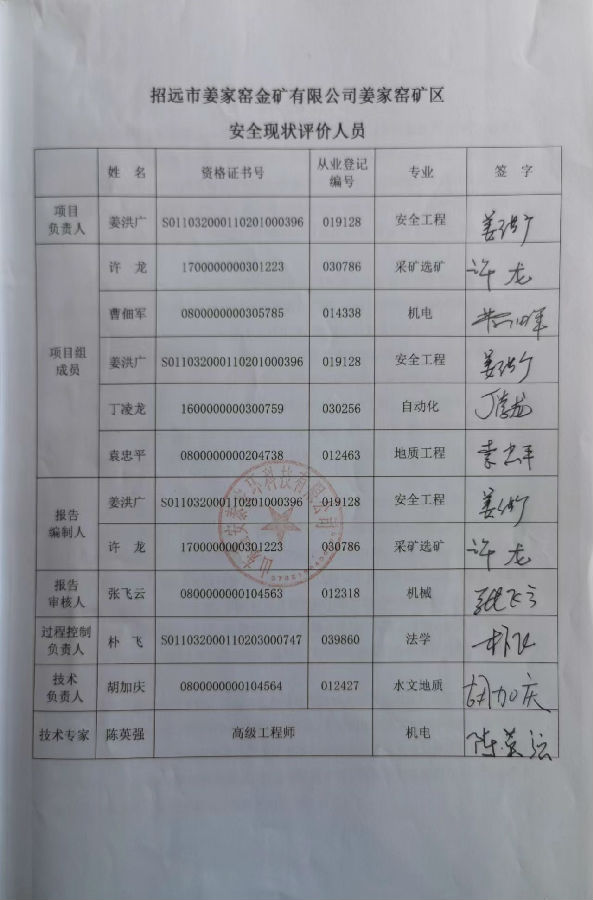 招远市姜家窑金矿有限公司姜家窑矿区
安全现状评价人员
姓 名 资格证书号 从业登记编号 专业 签 字
项目负责人 姜洪广 S011032000110201000396 019128 安全工程 姜洪广
项目组成员 许 龙 1700000000301223 030786 采矿选矿 许龙
曹佃军 0800000000305785 014338 机电 曹佃军
姜洪广 S011032000110201000396 019128 安全工程 姜洪广
丁凌龙 1600000000300759 030256 自动化 丁凌龙
袁忠平 0800000000204738 012463 地质工程 袁忠平
报告编制人 姜洪广 S011032000110201000396 019128 安全工程 姜洪广
许 龙 1700000000301223 030786 采矿选矿 许龙
报告审核人 张飞云 0800000000104563 012318 机械 张飞云
过程控制负责人 朴 飞 S011032000110203000747 039860 法学 朴飞
技术负责人 胡加庆 0800000000104564 012427 水文地质 胡加庆
技术专家 陈英强 高级工程师 机电 陈英强